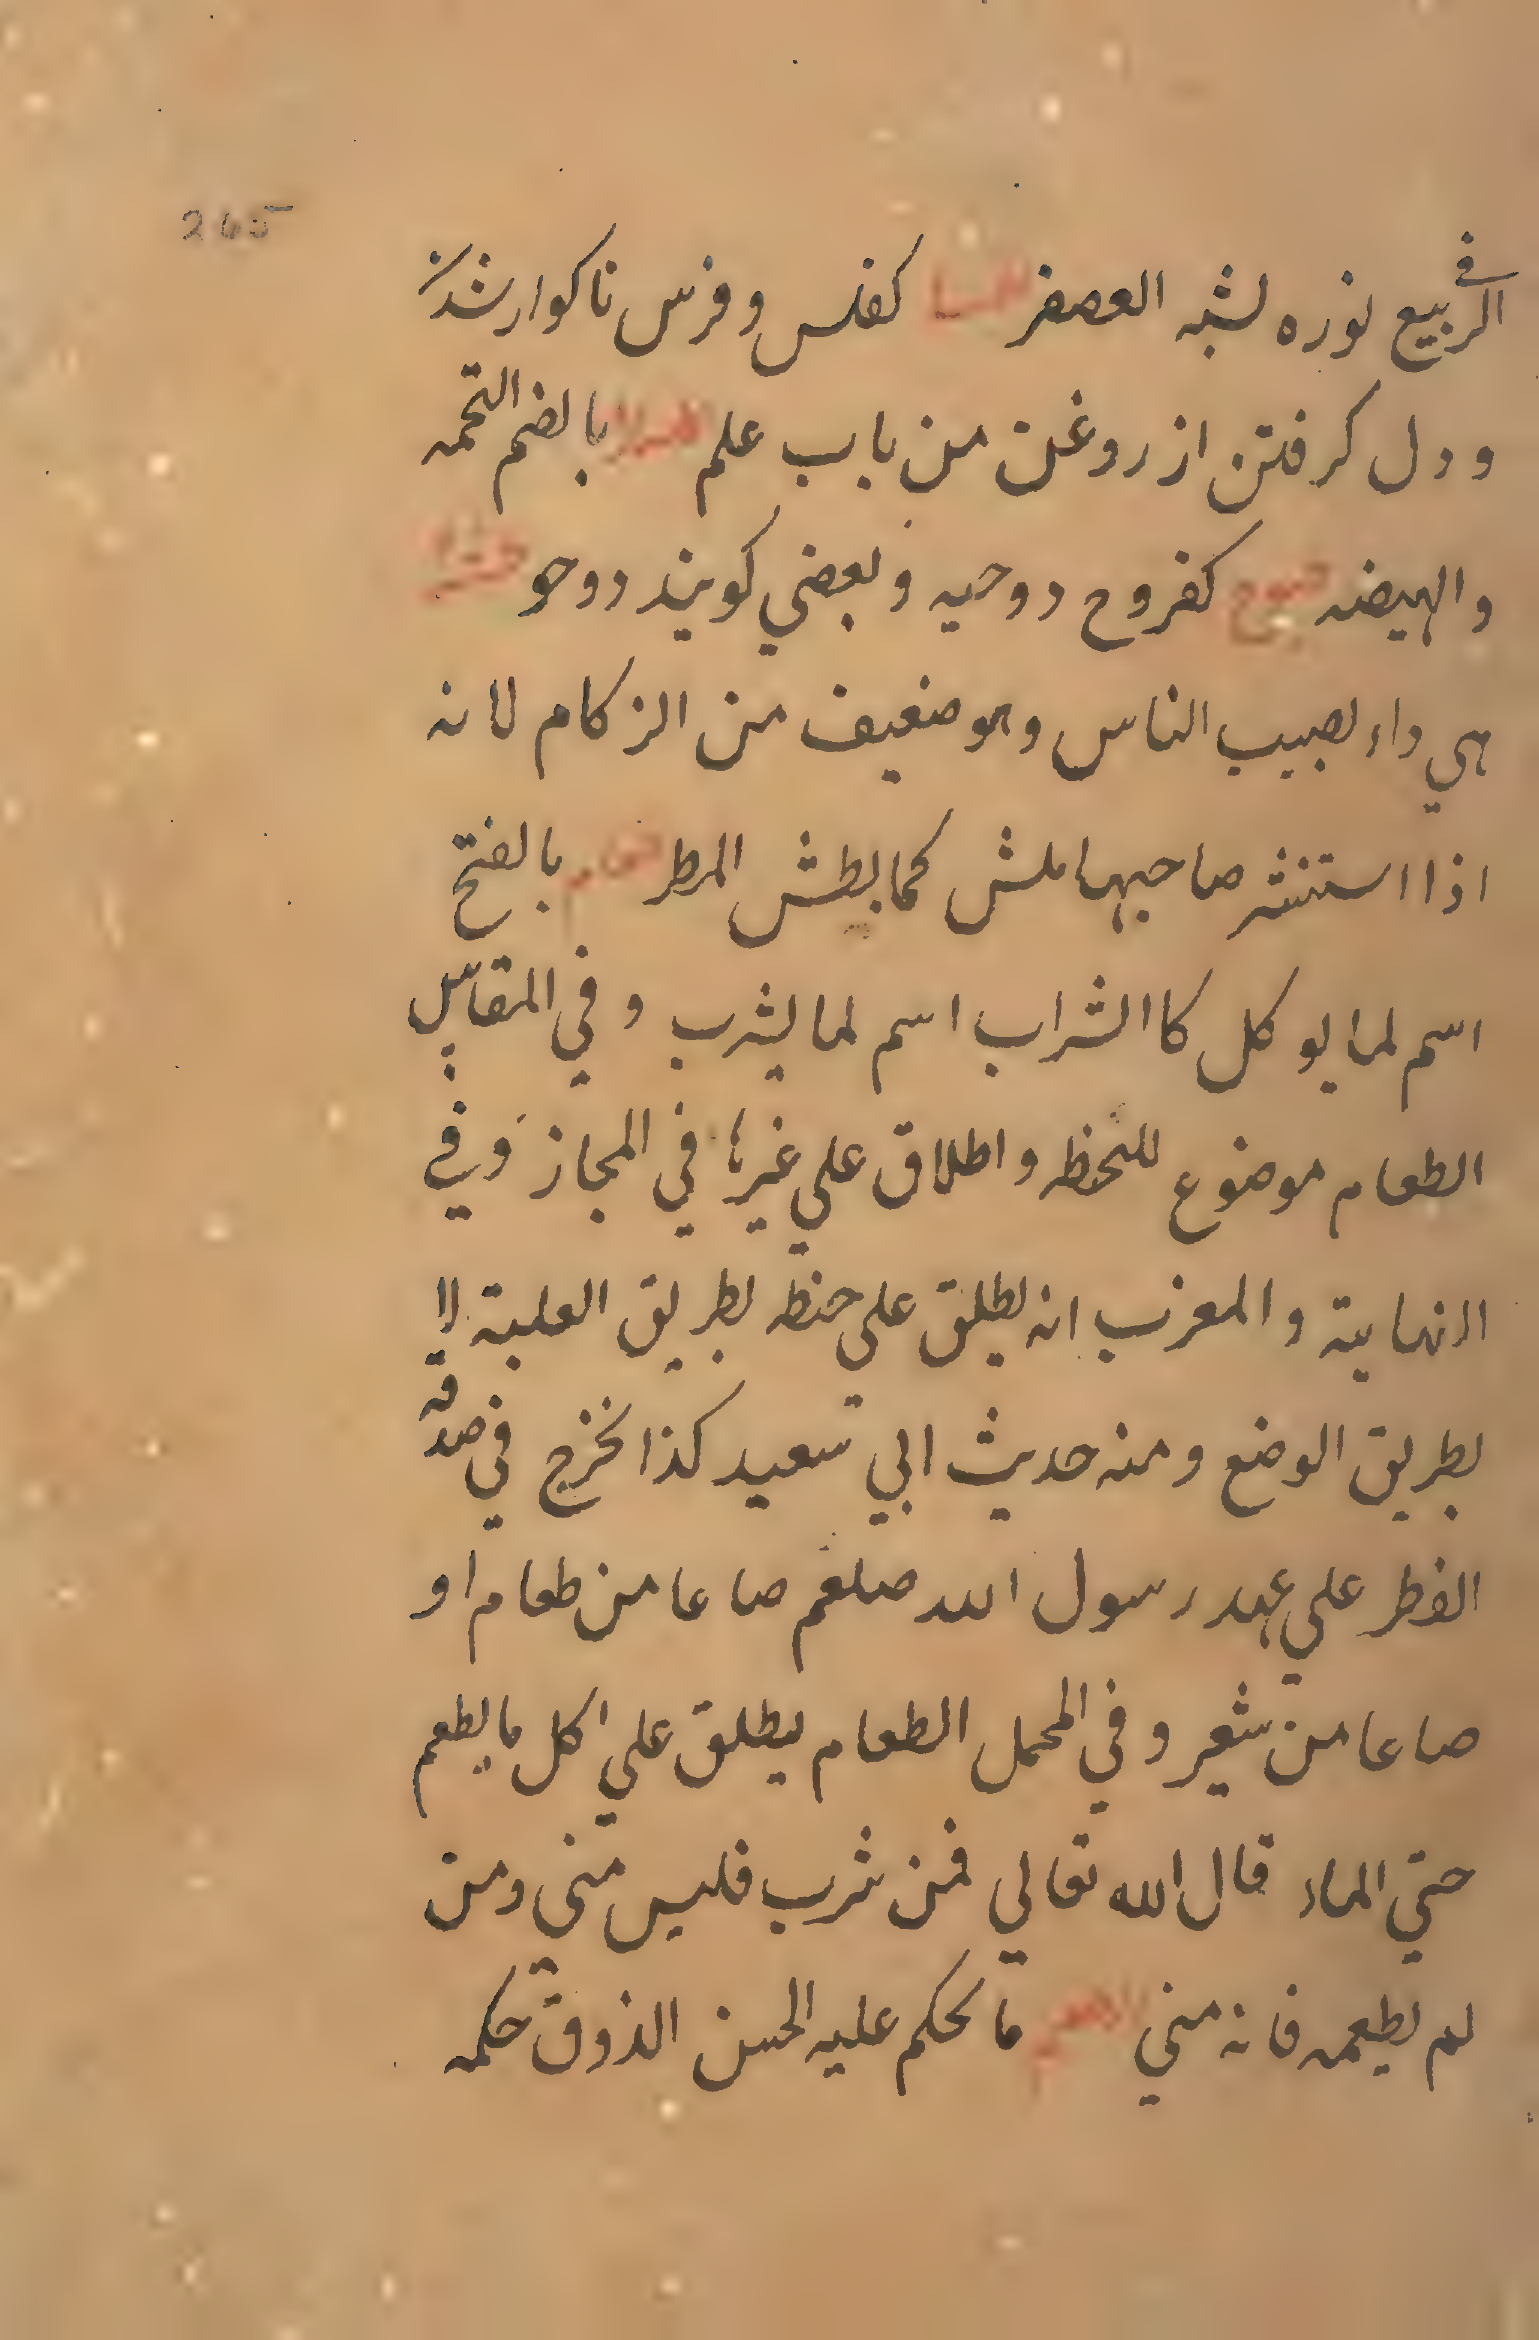 265
في الربيع نوره لشبه العصفر كفلس وفرس ناكوارشدن
ودل كرفتن از روغن من باب علم بالضم التخمه
والهيضه كفروح دوحيه وبعضي كويند دوحو
هي داء لصيب الناس وهو ضعيف من الزكام لانه
اذا استنثر صاحبها طش كما بطش المطر بالفتح
اسم لما يوكل كاالشراب اسم لما يشرب وفي المقاس
الطعام موضوع للحنطه واطلاق علي غيرها في المجاز وفي
النهاية والمغرب انه لطلق علي حنطه بطريق الغلبة لا
بطريق الوضع ومنه حديث ابي سعيد كذا نخرج في صدقه
الفطر علي عهد رسول الله صلعم صاعا من طعام او
صاعا من شعير وفي المجمل الطعام يطلق علي اكل ما يطعم
حتي الماء قال الله تعالي فمن شرب فليس مني ومن
لم يطعمه فانه مني الطعم ما يحكم عليه الحسن الذوق حكمه